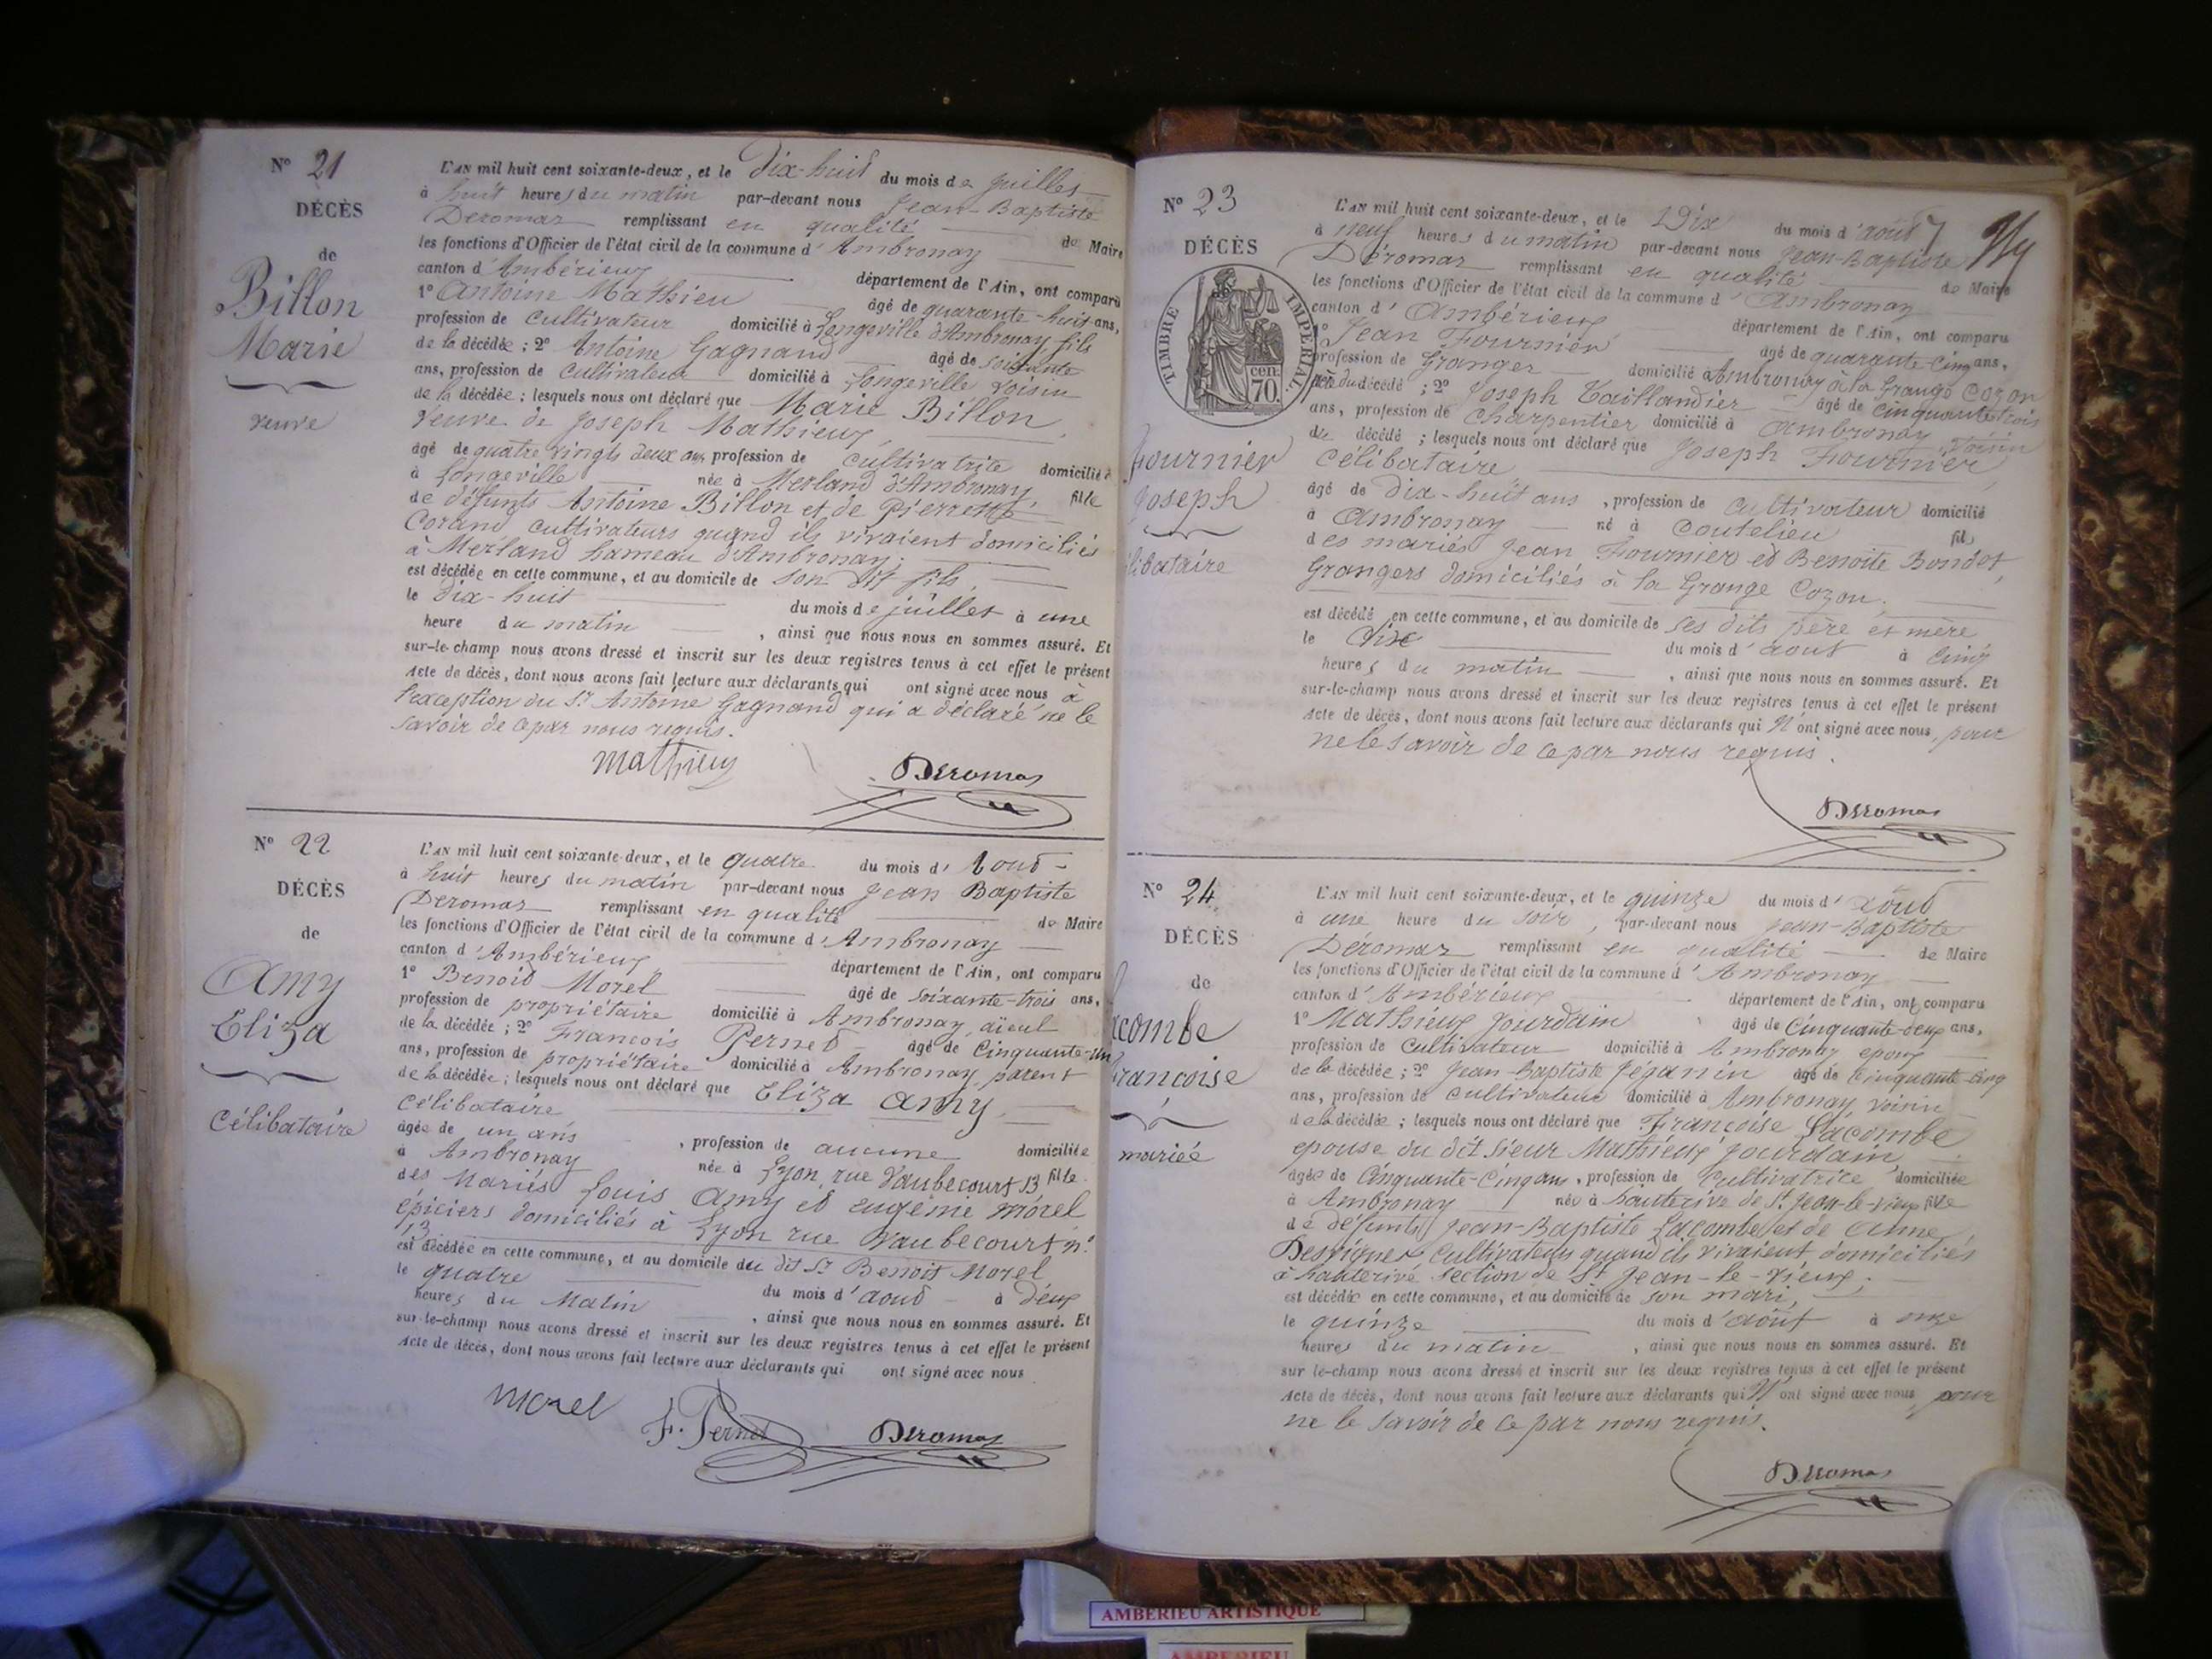 N° 21
DÉCÈS
de
Billon
Marie
veuve
L'AN mil huit cent soixante-deux, et le Dix-huit du mois de juillet
à huit heures du matin par-devant nous Jean-Baptiste
Deromas remplissant en qualité de Maire
les fonctions d'Officier de l'état civil de la commune d'Ambronay
canton d'Ambérieux département de l'Ain, ont comparu
1° Antoine Mathieu âgé de quarante-huit ans,
profession de cultivateur domicilié à Longeville d'Ambronay fils
de la décédée ; 2° Antoine Gagnand âgé de soixante
ans, profession de cultivateur domicilié à Longeville voisin
de la décédée ; lesquels nous ont déclaré que Marie Billon
veuve de Joseph Mathieux,
âgé de quatre vingts deux ans profession de cultivatrice domiciliée
à Longeville née à Merland d'Ambronay, fille
de défunts Antoine Billon et de Pierrette
Corand cultivateurs quand ils vivaient domiciliés
à Merland hameau d'Ambronay;
est décédée en cette commune, et au domicile de son dit fils,
le dix-huit du mois de juillet à une
heure du matin , ainsi que nous nous en sommes assuré. Et
sur-le-champ nous avons dressé et inscrit sur les deux registres tenus à cet effet le présent
Acte de décès, dont nous avons fait lecture aux déclarants qui ont signé avec nous à
l'exception du Sr Antoine Gagnand qui a déclaré ne le
savoir de ce par nous requis.
Mathieux Deromas
N° 22
DÉCÈS
de
Amy
Eliza
Célibataire
L'AN mil huit cent soixante-deux, et le quatre du mois d'Aout
à huit heures du matin par-devant nous Jean Baptiste
Deromas remplissant en qualité de Maire
les fonctions d'Officier de l'état civil de la commune d'Ambronay
canton d'Ambérieux département de l'Ain, ont comparu
1° Benoit Morel âgé de soixante-trois ans,
profession de propriétaire domicilié à Ambronay, aïeul
de la décédée ; 2° François Pernet âgé de cinquante-un
ans, profession de propriétaire domicilié à Ambronay, parent
de la décédée ; lesquels nous ont déclaré que Eliza Amy,
célibataire
âgée de un ans , profession de aucune domiciliée
à Ambronay née à Lyon, rue Vaubecourt 13 fille
des Mariés Louis Amy et Eugénie Morel
épiciers domiciliés à Lyon rue Vaubecourt n°
13
est décédée en cette commune, et au domicile du dit Sr Benoit Morel
le quatre du mois d'aout à deux
heures du Matin , ainsi que nous nous en sommes assuré. Et
sur-le-champ nous avons dressé et inscrit sur les deux registres tenus à cet effet le présent
Acte de décès, dont nous avons fait lecture aux déclarants qui ont signé avec nous
Morel F. Pernet Deromas
N° 23
DÉCÈS
TIMBRE IMPÉRIAL.
70. cen.
Fournier
Joseph
libataire
L'AN mil huit cent soixante-deux, et le Dix du mois d'aout
à neuf heures du matin par-devant nous Jean-Baptiste
Déromas remplissant en qualité de Maire
les fonctions d'Officier de l'état civil de la commune d'Ambronay
canton d'Ambérieux département de l'Ain, ont comparu
1° Jean Fournier âgé de quarante-cinq ans,
profession de Granger domicilié à Ambronay à la Grange Cozon
père du décédé ; 2° Joseph Taillandier âgé de cinquante trois
ans, profession de charpentier domicilié à Ambronay, voisin
du décédé ; lesquels nous ont déclaré que Joseph Fournier
célibataire
âgé de Dix-huit ans , profession de cultivateur domicilié
à Ambronay né à Coutelieu fils
des mariés Jean Fournier et Benoite Bondet,
Grangers domiciliés à la Grange Cozon;
est décédé en cette commune, et au domicile de ses dits père et mère
le dix du mois d'aout à cinq
heures du matin , ainsi que nous nous en sommes assuré. Et
sur-le-champ nous avons dressé et inscrit sur les deux registres tenus à cet effet le présent
Acte de décès, dont nous avons fait lecture aux déclarants qui N'ont signé avec nous, pour
ne le savoir de ce par nous requis.
Deromas
N° 24
DÉCÈS
de
acombe
françoise
mariée
L'AN mil huit cent soixante-deux, et le quinze du mois d'Aout
à une heure du soir, par-devant nous Jean-Baptiste
Déromas remplissant en qualité de Maire
les fonctions d'Officier de l'état civil de la commune d'Ambronay
canton d'Ambérieux département de l'Ain, ont comparu
1° Mathieux Jourdain âgé de Cinquante-deux ans,
profession de cultivateur domicilié à Ambronay epoux
de la décédée ; 2° Jean-Baptiste Jéganin âgé de cinquante cinq
ans, profession de cultivateur domicilié à Ambronay, voisin
de la décédée ; lesquels nous ont déclaré que Françoise Lacombe
epouse du dit Sieur Mathieux Jourdain,
âgée de Cinquante-Cinq ans, profession de Cultivatrice domiciliée
à Ambronay née à hauterive de St Jean-le-vieux fille
de défunts Jean-Baptiste Lacombe et de Anne
Desvignes cultivateurs quand ils vivaient domiciliés
à hauterive section de St Jean-le-vieux;
est décédée en cette commune, et au domicile de son mari,
le quinze du mois d'aout à onze
heures du matin , ainsi que nous nous en sommes assuré. Et
sur-le-champ nous avons dressé et inscrit sur les deux registres tenus à cet effet le présent
Acte de décès, dont nous avons fait lecture aux déclarants qui N'ont signé avec nous, pour
ne le savoir de ce par nous requis.
Deromas
AMBERIEU ARTISTIQUE
AMBERIEU